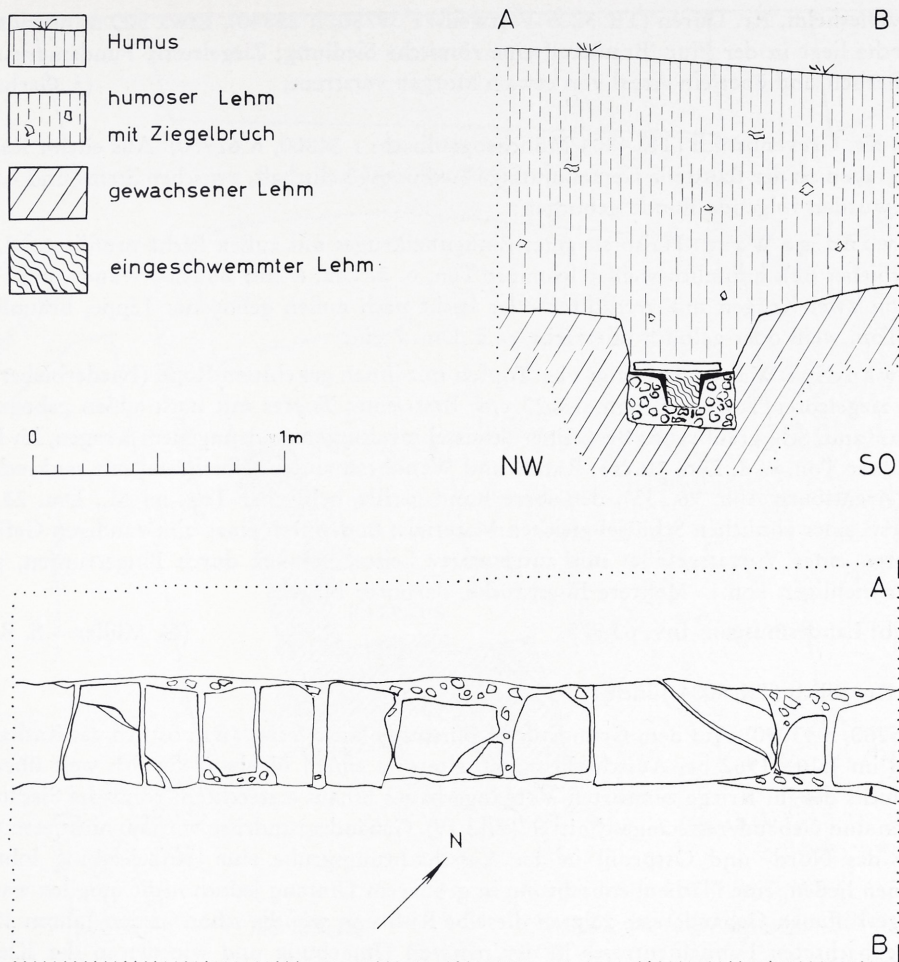 Humus
humoser Lehm
mit Ziegelbruch
gewachsener Lehm
eingeschwemmter Lehm
A
B
NW
SO
0
1m
A
N
B